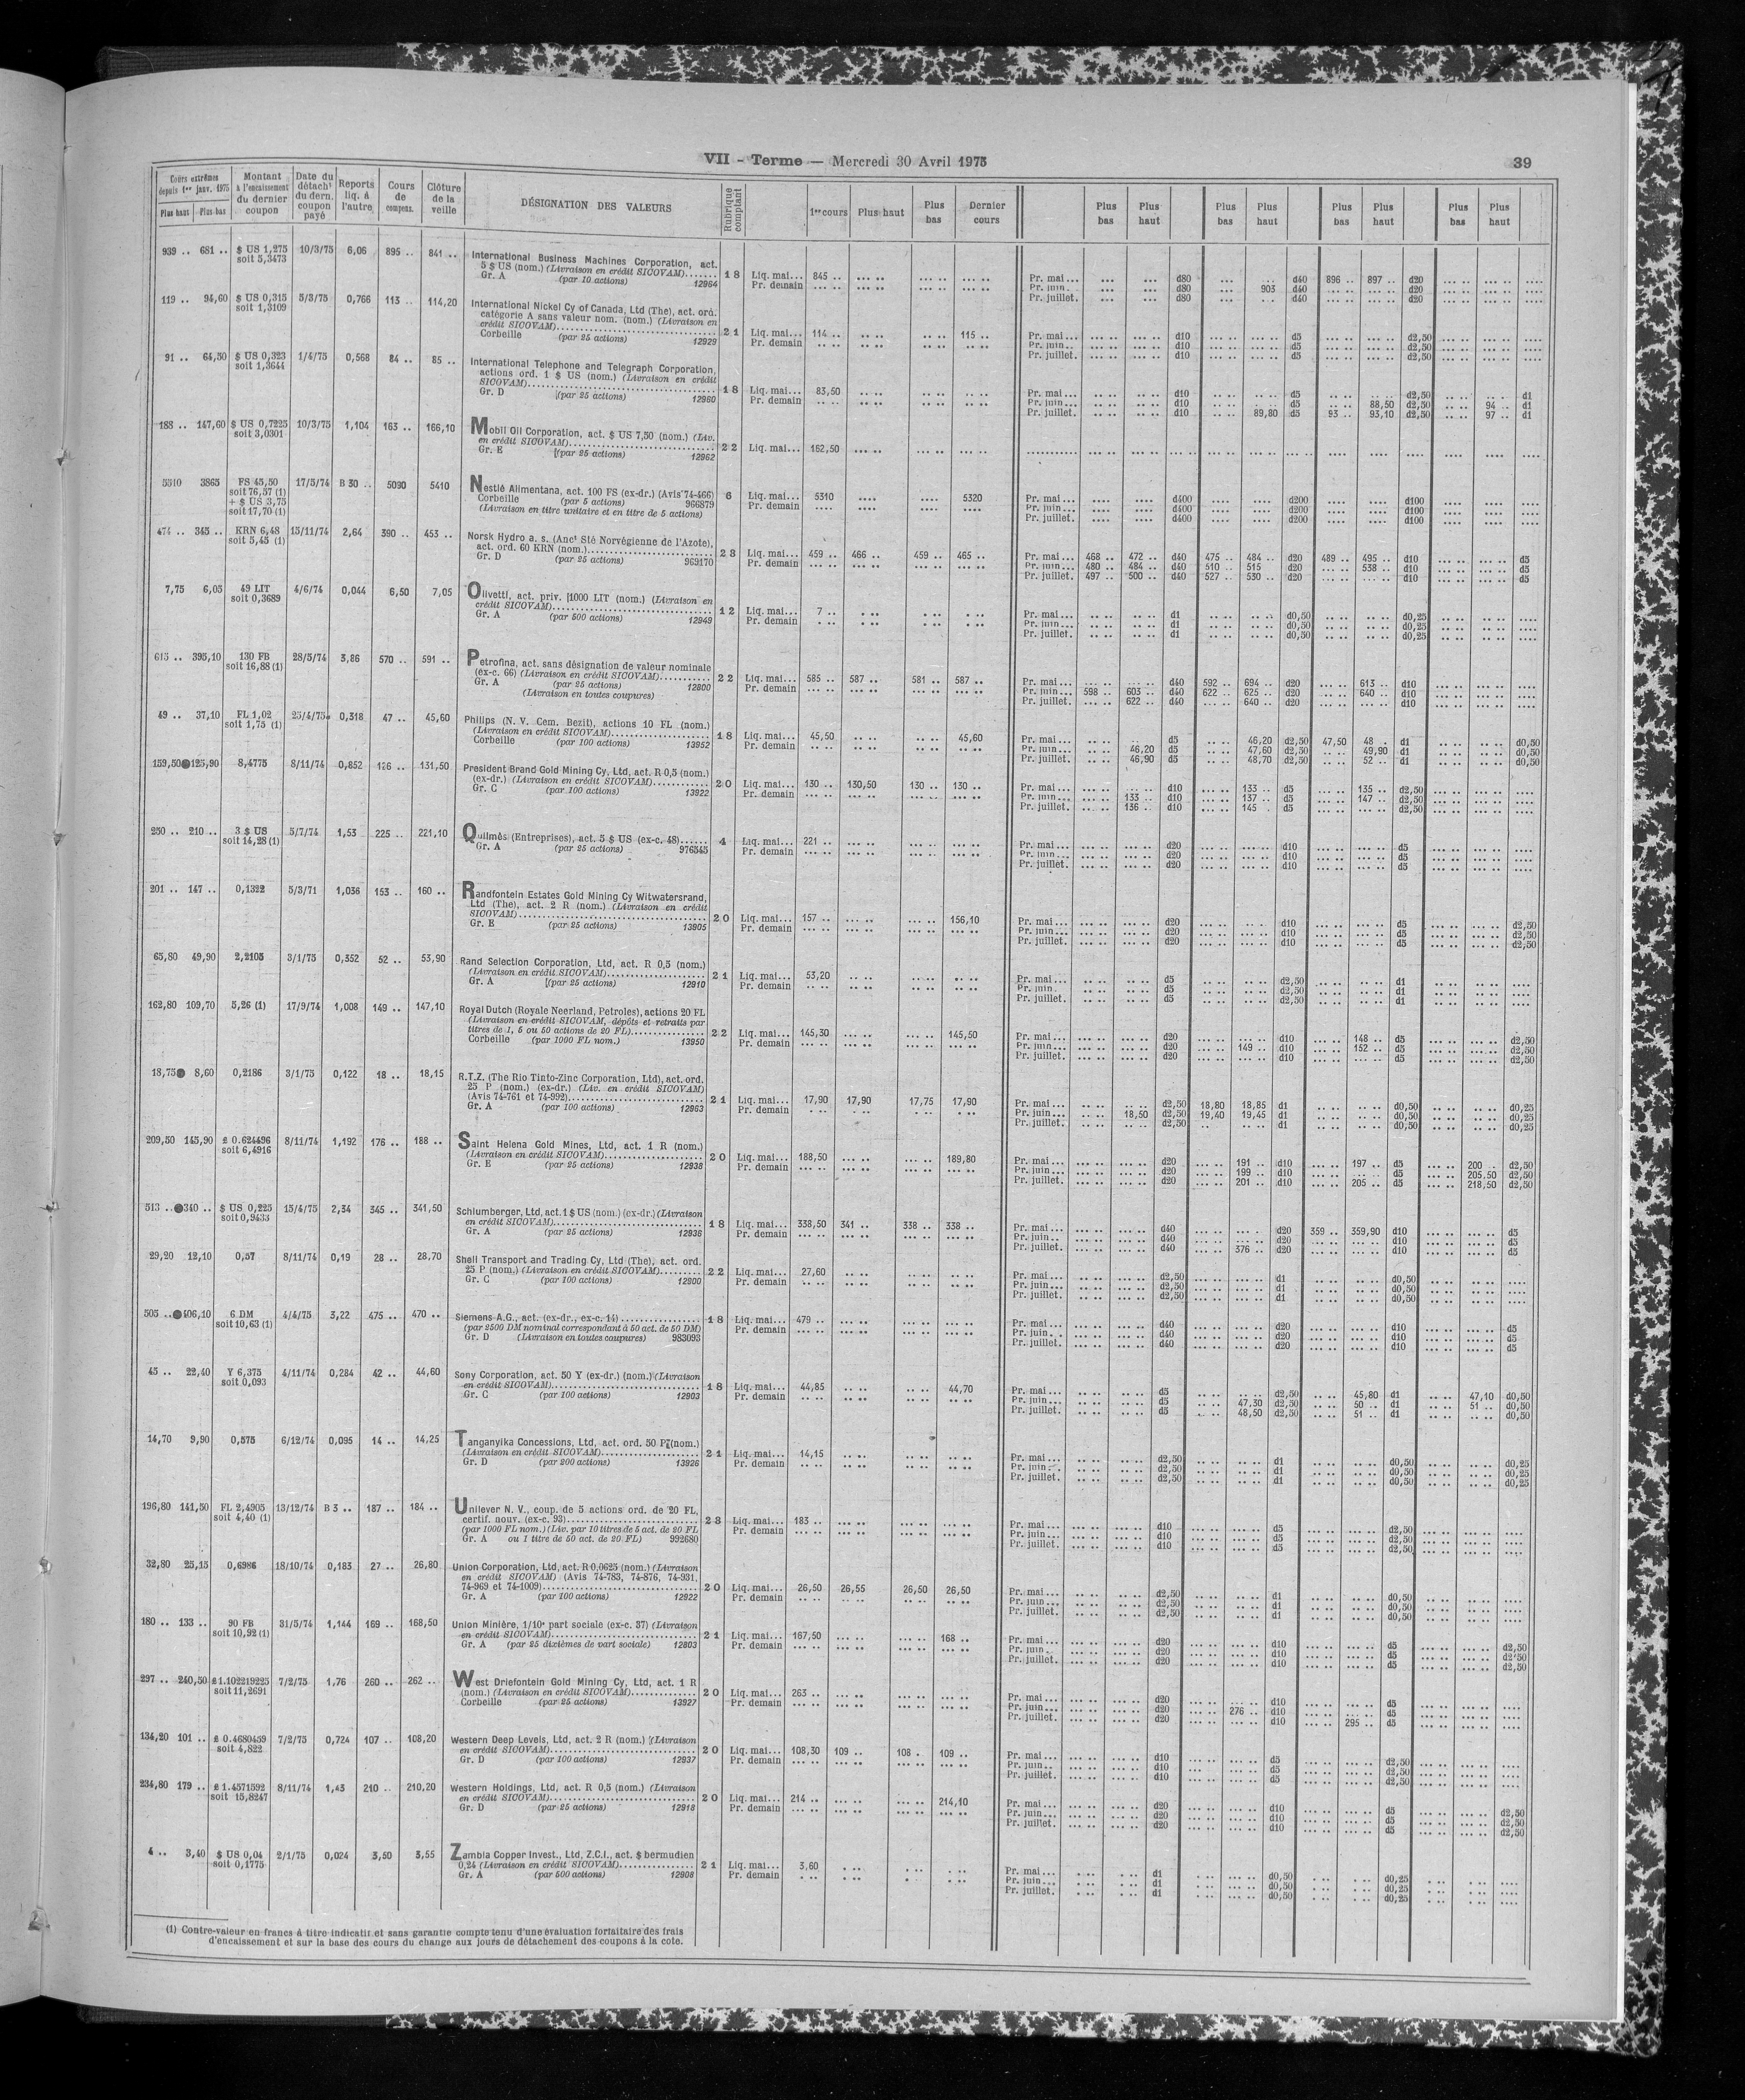 VII - Terme — Mercredi 30 Avril 1975
39
Cours extrêmes depuis 1er janv. 1975
Plus haut Plus bas
Montant à l'encaissement du dernier coupon
Date du détach¹ du dern. coupon payé
Reports liq. à l'autre
Cours de compens.
Clôture de la veille
DÉSIGNATION DES VALEURS
Rubrique comptant
1er cours Plus haut Plus bas Dernier cours
Plus bas Plus haut Plus bas Plus haut Plus bas Plus haut Plus bas Plus haut
939 .. 681 .. $ US 1,275 soit 5,3473 10/3/75 6,06 895 .. 841 ..
International Business Machines Corporation, act.
5 $ US (nom.) (Livraison en crédit SICOVAM)
Gr. A (par 10 actions) 12964
18 Liq. mai... 845 ..
Pr. demain
Pr. mai... d80 d40 896 .. 897 .. d20
Pr. juin... d80 903 d40 d20
Pr. juillet. d80 d40 d20
119 .. 94,60 $ US 0,315 soit 1,3109 5/3/75 0,766 113 .. 114,20
International Nickel Cy of Canada, Ltd (The), act. ord.
catégorie A sans valeur nom. (nom.) (Livraison en
crédit SICOVAM)
Corbeille (par 25 actions) 12929
21 Liq. mai... 114 .. 115 ..
Pr. demain
Pr. mai... d10 d5 d2,50
Pr. juin... d10 d5 d2,50
Pr. juillet. d10 d5 d2,50
91 .. 64,50 $ US 0,323 soit 1,3644 1/4/75 0,568 84 .. 85 ..
International Telephone and Telegraph Corporation,
actions ord. 1 $ US (nom.) (Livraison en crédit
SICOVAM)
Gr. D (par 25 actions) 12960
18 Liq. mai... 83,50
Pr. demain
Pr. mai... d10 d5 d2,50 d1
Pr. juin... d10 d5 88,50 d2,50 94 .. d1
Pr. juillet. d10 89,80 d5 93 .. 93,10 d2,50 97 .. d1
188 .. 147,60 $ US 0,7225 soit 3,0301 10/3/75 1,104 163 .. 166,10
Mobil Oil Corporation, act. $ US 7,50 (nom.) (Liv.
en crédit SICOVAM)
Gr. E (par 25 actions) 12962
22 Liq. mai... 162,50
5510 3865 FS 45,50 soit 76,57 (1) + $ US 3,75 soit 17,70 (1) 17/5/74 B 30 .. 5090 5410
Nestlé Alimentana, act. 100 FS (ex-dr.) (Avis 74-466)
Corbeille (par 5 actions) 966879
(Livraison en titre unitaire et en titre de 5 actions)
6 Liq. mai... 5310 5320
Pr. demain
Pr. mai... d400 d200 d100
Pr. juin... d400 d200 d100
Pr. juillet. d400 d200 d100
474 .. 345 .. KRN 6,48 soit 5,45 (1) 15/11/74 2,64 390 .. 453 ..
Norsk Hydro a. s. (Anct Sté Norvégienne de l'Azote),
act. ord. 60 KRN (nom.)
Gr. D (par 25 actions) 969170
23 Liq. mai... 459 .. 466 .. 459 .. 465 ..
Pr. demain
Pr. mai... 468 .. 472 .. d40 475 .. 484 .. d20 489 .. 495 .. d10 d5
Pr. juin... 480 .. 484 .. d40 510 .. 515 d20 538 .. d10 d5
Pr. juillet. 497 .. 500 .. d40 527 .. 530 .. d20 d10 d5
7,75 6,05 49 LIT soit 0,3689 4/6/74 0,044 6,50 7,05
Olivetti, act. priv. 1000 LIT (nom.) (Livraison en
crédit SICOVAM)
Gr. A (par 500 actions) 12949
12 Liq. mai... 7 ..
Pr. demain
Pr. mai... d1 d0,50 d0,25
Pr. juin... d1 d0,50 d0,25
Pr. juillet. d1 d0,50 d0,25
615 .. 395,10 130 FB soit 16,88 (1) 28/5/74 3,86 570 .. 591 ..
Petrofina, act. sans désignation de valeur nominale
(ex-c. 66) (Livraison en crédit SICOVAM)
Gr. A (par 25 actions) 12800
(Livraison en toutes coupures)
22 Liq. mai... 585 .. 587 .. 581 .. 587 ..
Pr. demain
Pr. mai... d40 592 .. 694 .. d20 613 .. d10
Pr. juin... 598 .. 603 .. d40 622 .. 625 .. d20 640 .. d10
Pr. juillet. 622 .. d40 640 .. d20 d10
49 .. 37,10 FL 1,02 soit 1,75 (1) 25/4/75 0,318 47 .. 45,60
Philips (N. V. Cem. Bezit), actions 10 FL (nom.)
(Livraison en crédit SICOVAM)
Corbeille (par 100 actions) 13952
18 Liq. mai... 45,50 45,60
Pr. demain
Pr. mai... d5 46,20 d2,50 47,50 48 .. d1 d0,50
Pr. juin... 46,20 d5 47,60 d2,50 49,90 d1 d0,50
Pr. juillet. 46,90 d5 48,70 d2,50 52 .. d1 d0,50
159,50 125,90 8,4775 8/11/74 0,852 126 .. 131,50
President Brand Gold Mining Cy, Ltd, act. R 0,5 (nom.)
(ex-dr.) (Livraison en crédit SICOVAM)
Gr. C (par 100 actions) 13922
20 Liq. mai... 130 .. 130,50 130 .. 130 ..
Pr. demain
Pr. mai... d10 133 .. d5 135 .. d2,50
Pr. juin... 133 .. d10 137 .. d5 147 .. d2,50
Pr. juillet. 136 .. d10 145 . d5 d2,50
250 .. 210 .. 3 $ US soit 14,28 (1) 5/7/74 1,53 225 .. 221,10
Quilmès (Entreprises), act. 5 $ US (ex-c. 48)
Gr. A (par 25 actions) 976545
4 Liq. mai... 221 ..
Pr. demain
Pr. mai... d20 d10 d5
Pr. juin... d20 d10 d5
Pr. juillet. d20 d10 d5
201 .. 147 .. 0,1322 5/3/71 1,036 153 .. 160 ..
Randfontein Estates Gold Mining Cy Witwatersrand,
Ltd (The), act. 2 R (nom.) (Livraison en crédit
SICOVAM)
Gr. E (par 25 actions) 13905
20 Liq. mai... 157 .. 156,10
Pr. demain
Pr. mai... d20 d10 d5 d2,50
Pr. juin... d20 d10 d5 d2,50
Pr. juillet. d20 d10 d5 d2,50
65,80 49,90 2,2105 3/1/75 0,352 52 .. 53,90
Rand Selection Corporation, Ltd, act. R 0,5 (nom.)
(Livraison en crédit SICOVAM)
Gr. A (par 25 actions) 12910
21 Liq. mai... 53,20
Pr. demain
Pr. mai... d5 d2,50 d1
Pr. juin . d5 d2,50 d1
Pr. juillet. d5 d2,50 d1
162,80 109,70 5,26 (1) 17/9/74 1,008 149 .. 147,10
Royal Dutch (Royale Neerland, Petroles), actions 20 FL
(Livraison en crédit SICOVAM, dépôts et retraits par
titres de 1, 5 ou 50 actions de 20 FL)
Corbeille (par 1000 FL nom.) 13950
22 Liq. mai... 145,30 145,50
Pr. demain
Pr. mai... d20 d10 148 .. d5 d2,50
Pr. juin... d20 149 .. d10 152 .. d5 d2,50
Pr. juillet. d20 d10 d5 d2,50
18,75 8,60 0,2186 3/1/75 0,122 18 .. 18,15
R.T.Z. (The Rio Tinto-Zinc Corporation, Ltd), act. ord.
25 P (nom.) (ex-dr.) (Liv. en crédit SICOVAM)
(Avis 74-761 et 74-992)
Gr. A (par 100 actions) 12963
21 Liq. mai... 17,90 17,90 17,75 17,90
Pr. demain
Pr. mai... d2,50 18,80 18,85 d1 d0,50 d0,25
Pr. juin... 18,50 d2,50 19,40 19,45 d1 d0,50 d0,25
Pr. juillet. d2,50 d1 d0,50 d0,25
209,50 145,90 £ 0.624496 soit 6,4916 8/11/74 1,192 176 .. 188 ..
Saint Helena Gold Mines, Ltd, act. 1 R (nom.)
(Livraison en crédit SICOVAM)
Gr. E (par 25 actions) 12938
20 Liq. mai... 188,50 189,80
Pr. demain
Pr. mai... d20 191 .. d10 197 .. d5 200 .. d2,50
Pr. juin... d20 199 .. d10 d5 205,50 d2,50
Pr. juillet. d20 201 .. d10 205 .. d5 218,50 d2,50
513 .. 340 .. $ US 0,225 soit 0,9433 15/4/75 2,34 345 .. 341,50
Schlumberger, Ltd, act. 1 $ US (nom.) (ex-dr.) (Livraison
en crédit SICOVAM)
Gr. A (par 25 actions) 12936
18 Liq. mai... 338,50 341 .. 338 .. 338 ..
Pr. demain
Pr. mai... d40 d20 359 .. 359,90 d10 d5
Pr. juin.. d40 d20 d10 d5
Pr. juillet. d40 376 .. d20 d10 d5
29,20 12,10 0,57 8/11/74 0,19 28 .. 28,70
Shell Transport and Trading Cy, Ltd (The), act. ord.
25 P (nom.) (Livraison en crédit SICOVAM)
Gr. C (par 100 actions) 12900
22 Liq. mai... 27,60
Pr. demain
Pr. mai... d2,50 d1 d0,50
Pr. juin... d2,50 d1 d0,50
Pr. juillet. d2,50 d1 d0,50
505 .. 406,10 6 DM soit 10,63 (1) 4/4/75 3,22 475 .. 470 ..
Siemens A.G., act. (ex-dr., ex-c. 14)
(par 2500 DM nominal correspondant à 50 act. de 50 DM)
Gr. D (Livraison en toutes coupures) 983093
18 Liq. mai... 479 ..
Pr. demain
Pr. mai... d40 d20 d10 d5
Pr. juin. . d40 d20 d10 d5
Pr. juillet. d40 d20 d10 d5
45 .. 22,40 Y 6,375 soit 0,093 4/11/74 0,284 42 .. 44,60
Sony Corporation, act. 50 Y (ex-dr.) (nom.) (Livraison
en crédit SICOVAM)
Gr. C (par 100 actions) 12903
18 Liq. mai... 44,85 44,70
Pr. demain
Pr. mai... d5 d2,50 45,80 d1 47,10 d0,50
Pr. juin... d5 47,30 d2,50 50 .. d1 51 .. d0,50
Pr. juillet. d5 48,50 d2,50 51 .. d1 d0,50
14,70 9,90 0,575 6/12/74 0,095 14 .. 14,25
Tanganyika Concessions, Ltd, act. ord. 50 P (nom.)
(Livraison en crédit SICOVAM)
Gr. D (par 200 actions) 13926
21 Liq. mai... 14,15
Pr. demain
Pr. mai... d2,50 d1 d0,50 d0,25
Pr. juin... d2,50 d1 d0,50 d0,25
Pr. juillet. d2,50 d1 d0,50 d0,25
196,80 141,50 FL 2,4905 soit 4,40 (1) 13/12/74 B 3 .. 187 .. 184 ..
Unilever N. V., coup. de 5 actions ord. de 20 FL,
certif. nouv. (ex-c. 93)
(par 1000 FL nom.) (Liv. par 10 titres de 5 act. de 20 FL
Gr. A ou 1 titre de 50 act. de 20 FL) 992680
23 Liq. mai... 183 ..
Pr. demain
Pr. mai... d10 d5 d2,50
Pr. juin... d10 d5 d2,50
Pr. juillet. d10 d5 d2,50
32,80 25,15 0,6986 18/10/74 0,183 27 .. 26,80
Union Corporation, Ltd, act. R 0,0625 (nom.) (Livraison
en crédit SICOVAM) (Avis 74-783, 74-876, 74-931,
74-969 et 74-1009)
Gr. A (par 100 actions) 12922
20 Liq. mai... 26,50 26,55 26,50 26,50
Pr. demain
Pr. mai... d2,50 d1 d0,50
Pr. juin... d2,50 d1 d0,50
Pr. juillet. d2,50 d1 d0,50
180 .. 133 .. 90 FB soit 10,92 (1) 31/5/74 1,144 169 .. 168,50
Union Minière, 1/10e part sociale (ex-c. 37) (Livraison
en crédit SICOVAM)
Gr. A (par 25 dixièmes de part sociale) 12803
21 Liq. mai... 167,50 168 ..
Pr. demain
Pr. mai... d20 d10 d5 d2,50
Pr. juin... d20 d10 d5 d2,50
Pr. juillet. d20 d10 d5 d2,50
297 .. 240,50 £ 1.102219225 soit 11,2691 7/2/75 1,76 260 .. 262 ..
West Driefontein Gold Mining Cy, Ltd, act. 1 R
(nom.) (Livraison en crédit SICOVAM)
Corbeille (par 25 actions) 13927
20 Liq. mai... 263 ..
Pr. demain
Pr. mai... d20 d10 d5
Pr. juin... d20 276 .. d10 d5
Pr. juillet. d20 d10 295 .. d5
134,20 101 .. £ 0.4680459 soit 4,822 7/2/75 0,724 107 .. 108,20
Western Deep Levels, Ltd, act. 2 R (nom.) (Livraison
en crédit SICOVAM)
Gr. D (par 100 actions) 12937
20 Liq. mai... 108,30 109 .. 108 . 109 ..
Pr. demain
Pr. mai... d10 d5 d2,50
Pr. juin... d10 d5 d2,50
Pr. juillet. d10 d5 d2,50
234,80 179 .. £ 1.4571592 soit 15,8247 8/11/74 1,43 210 .. 210,20
Western Holdings, Ltd, act. R 0,5 (nom.) (Livraison
en crédit SICOVAM)
Gr. D (par 25 actions) 12918
20 Liq. mai... 214 .. 214,10
Pr. demain
Pr. mai... d20 d10 d5 d2,50
Pr. juin... d20 d10 d5 d2,50
Pr. juillet. d20 d10 d5 d2,50
4 .. 3,40 $ US 0,04 soit 0,1775 2/1/75 0,024 3,50 3,55
Zambia Copper Invest., Ltd, Z.C.I., act. $ bermudien
0,24 (Livraison en crédit SICOVAM)
Gr. A (par 500 actions) 12908
21 Liq. mai... 3,60
Pr. demain
Pr. mai... d1 d0,50 d0,25
Pr. juin... d1 d0,50 d0,25
Pr. juillet. d1 d0,50 d0,25
(1) Contre-valeur en francs à titre indicatif et sans garantie compte tenu d'une évaluation forfaitaire des frais
d'encaissement et sur la base des cours du change aux jours de détachement des coupons à la cote.